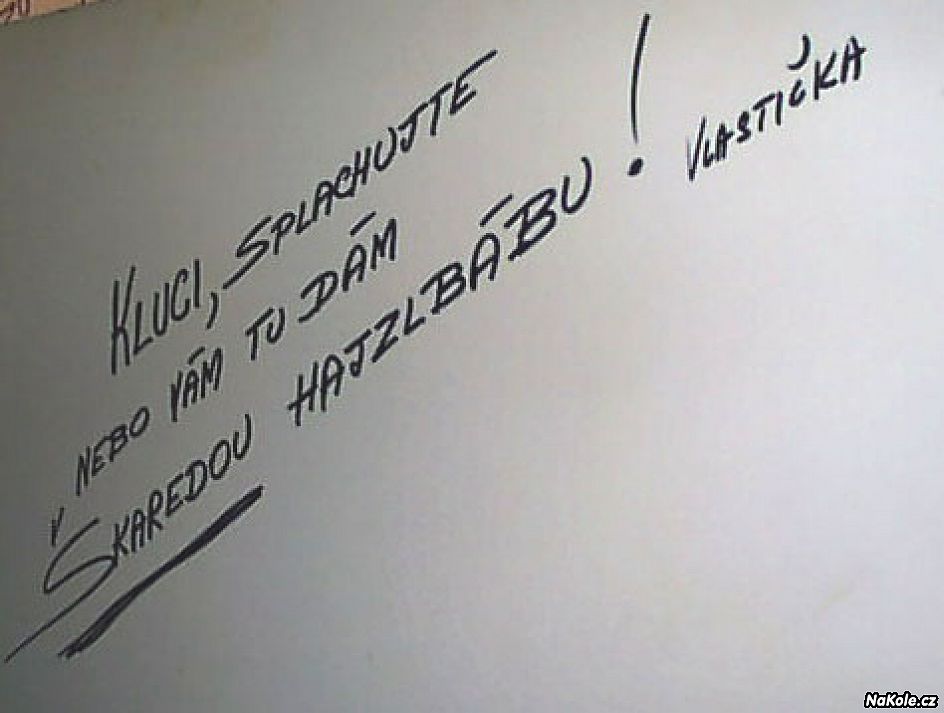 KLUCI, SPLACHUJTE
NEBO VÁM TU DÁM
ŠKAREDOU HAJZLBÁBU!
VLASTIČKA
NaKole.cz